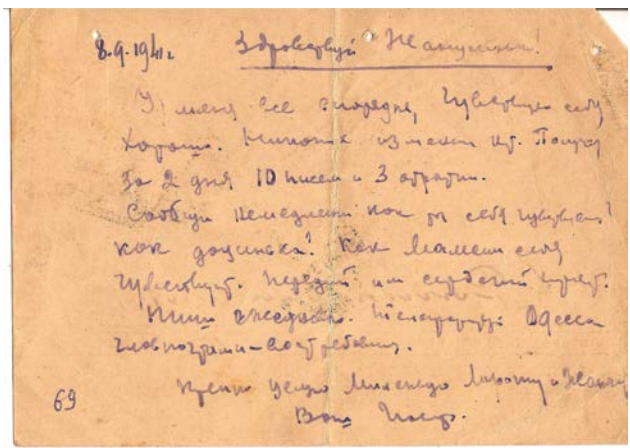 8.9.1941г. Здравствуй Жанушенька!
У меня все в порядке, Чувствую себя
Хорошо. Никаких изменен нет. Получ
за 2 дня 10 писем и 3
Сообщи немедленно как ты себя чувствуешь?
как доченька? Как Мамаши себя
Чувствуют. Передай им сердечный привет.
Пиши ежедневно. Телеграфируй Одесса
Главпочтамт-востребования.
Крепко целую Миленькую и
69 Ваш